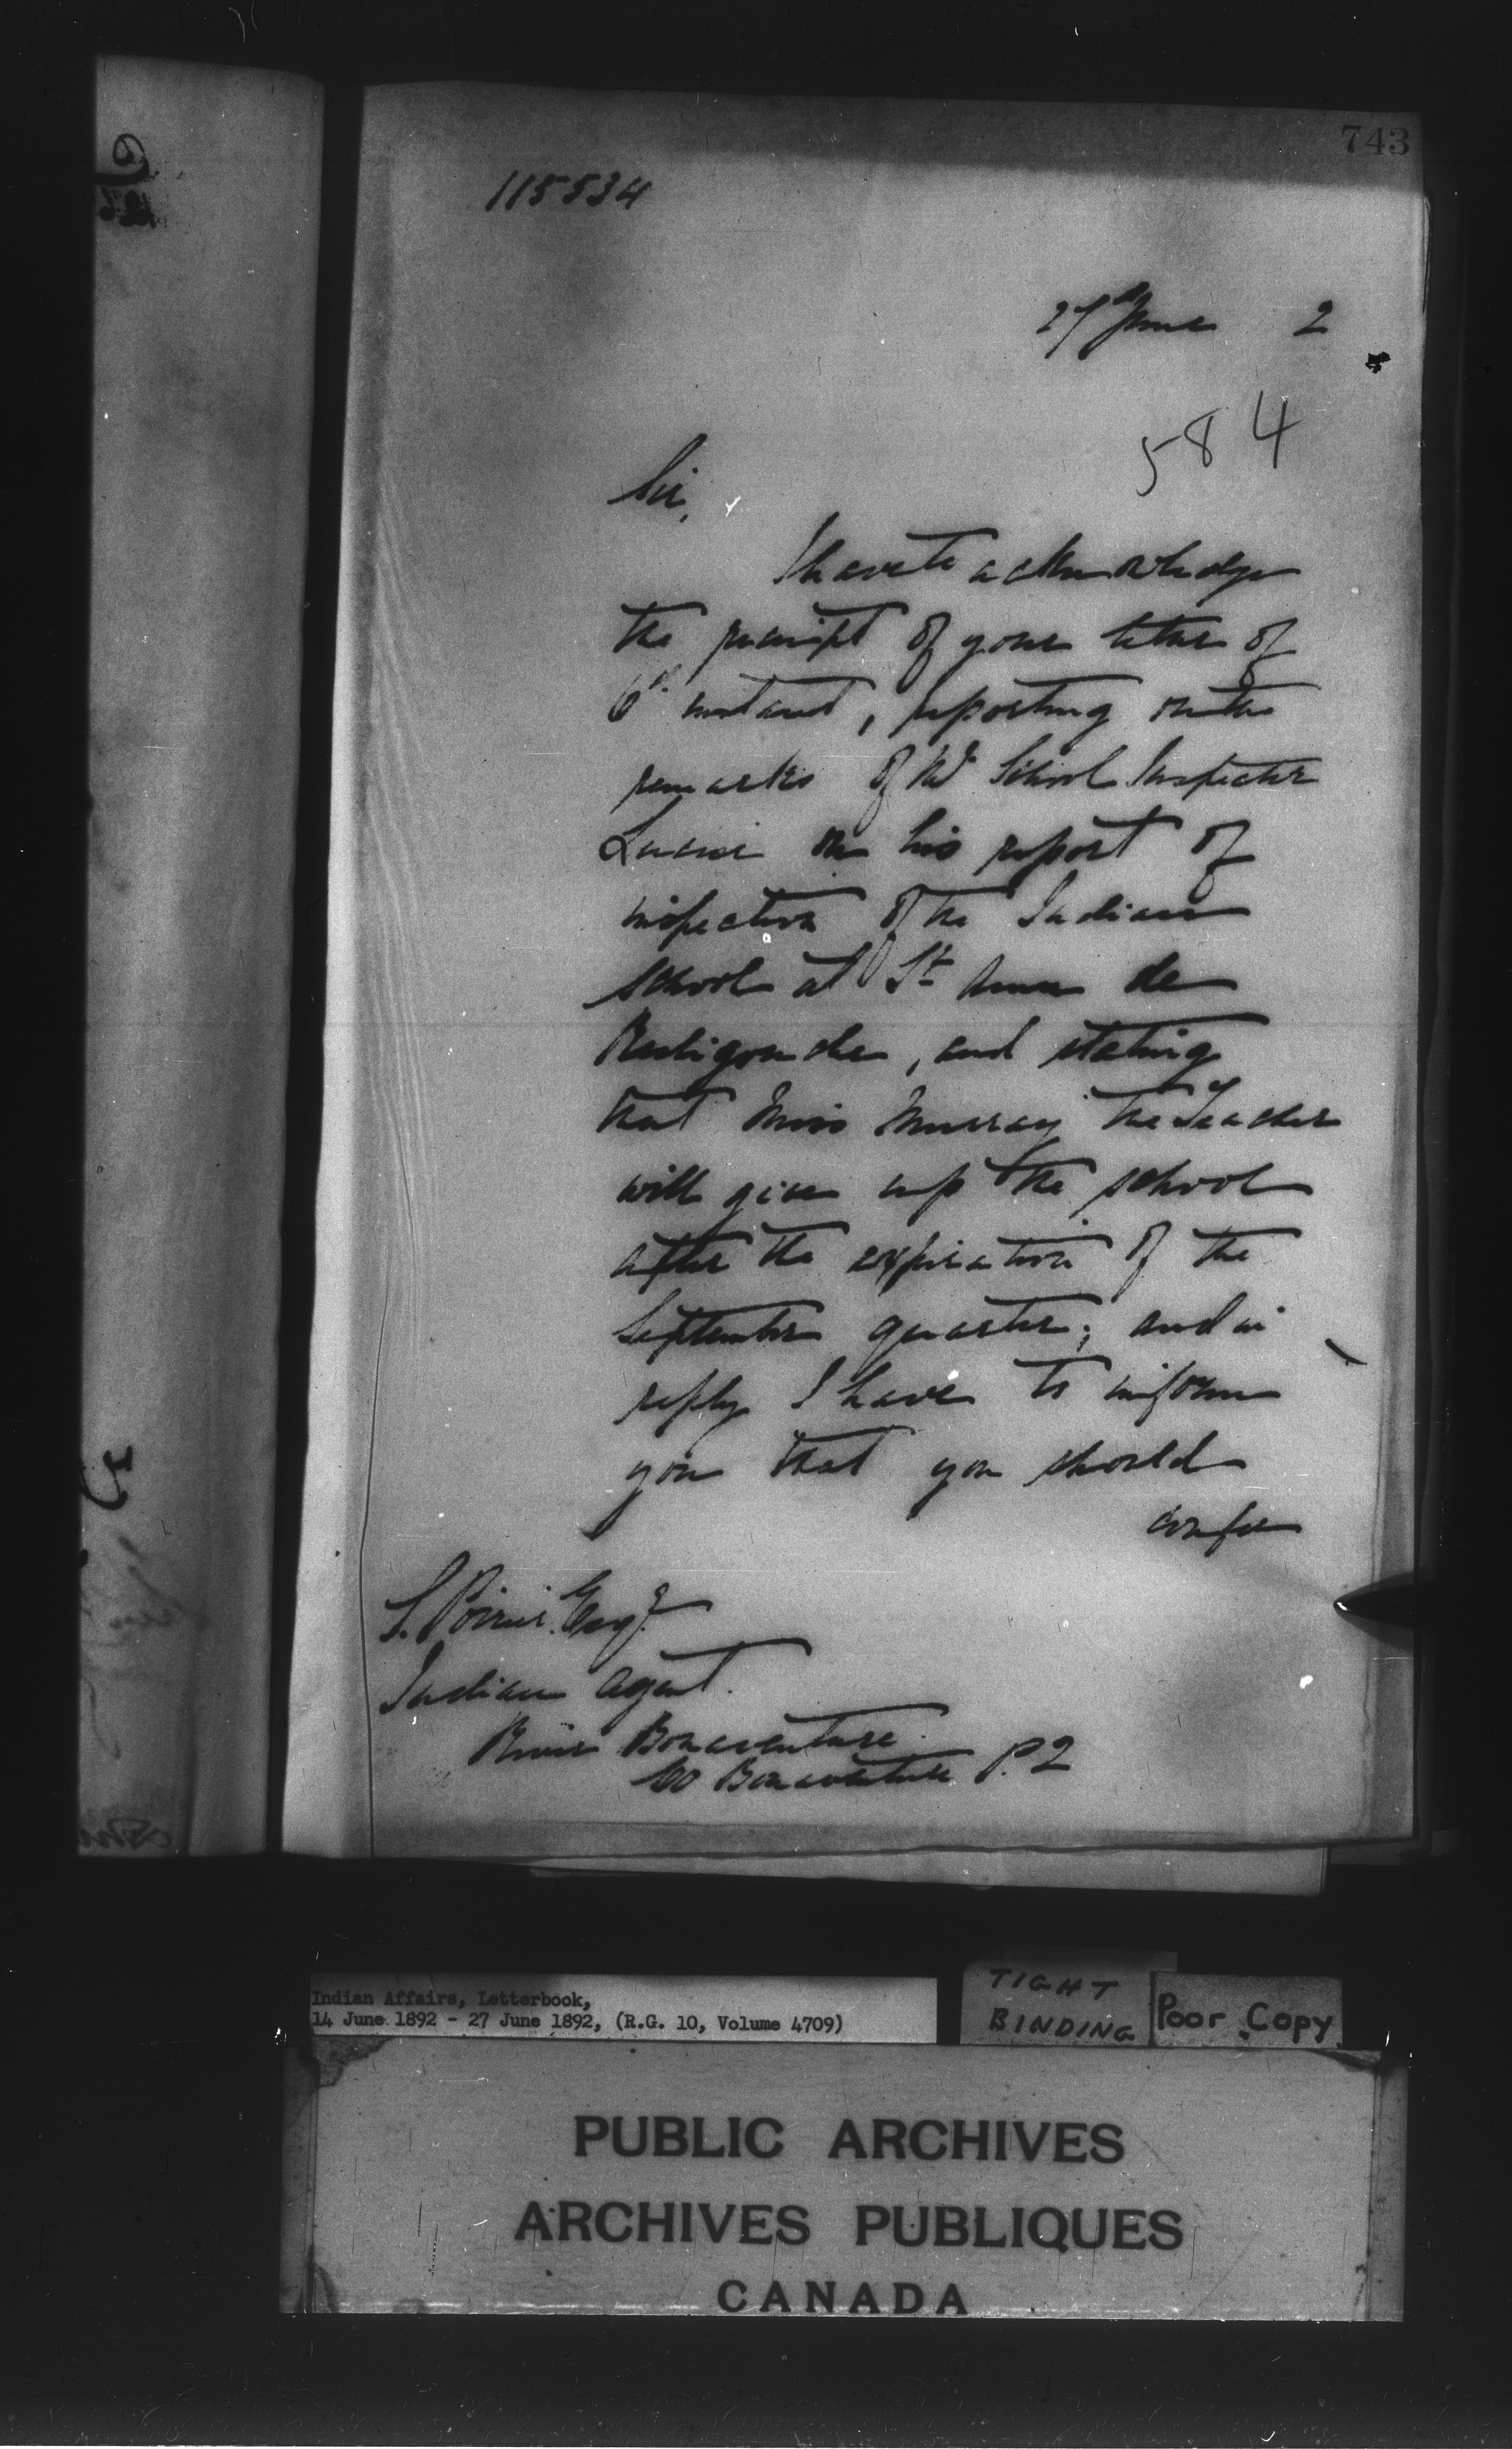 743
115534
27th June 2
584
Sir,
I have to acknowledge
the receipt of your letter of
6th instant, reporting on the
remarks of Mr School Inspector
Lucier on his report of
inspection of the Indian
school at St Anne de
Restigouche, and stating
that Miss Murray the Teacher
will give up the school
after the expiration of the
September quarter; and in
reply I have to inform
you that you should
confer
Poirier Esqr.
Indian Agent.
River Bonaventure.
Co Bonaventure P.Q
Indian Affairs, Letterbook,
14 June 1892 - 27 June 1892, (R.G. 10, Volume 4709)
TIGHT
BINDING
Poor Copy
PUBLIC ARCHIVES
ARCHIVES PUBLIQUES
CANADA